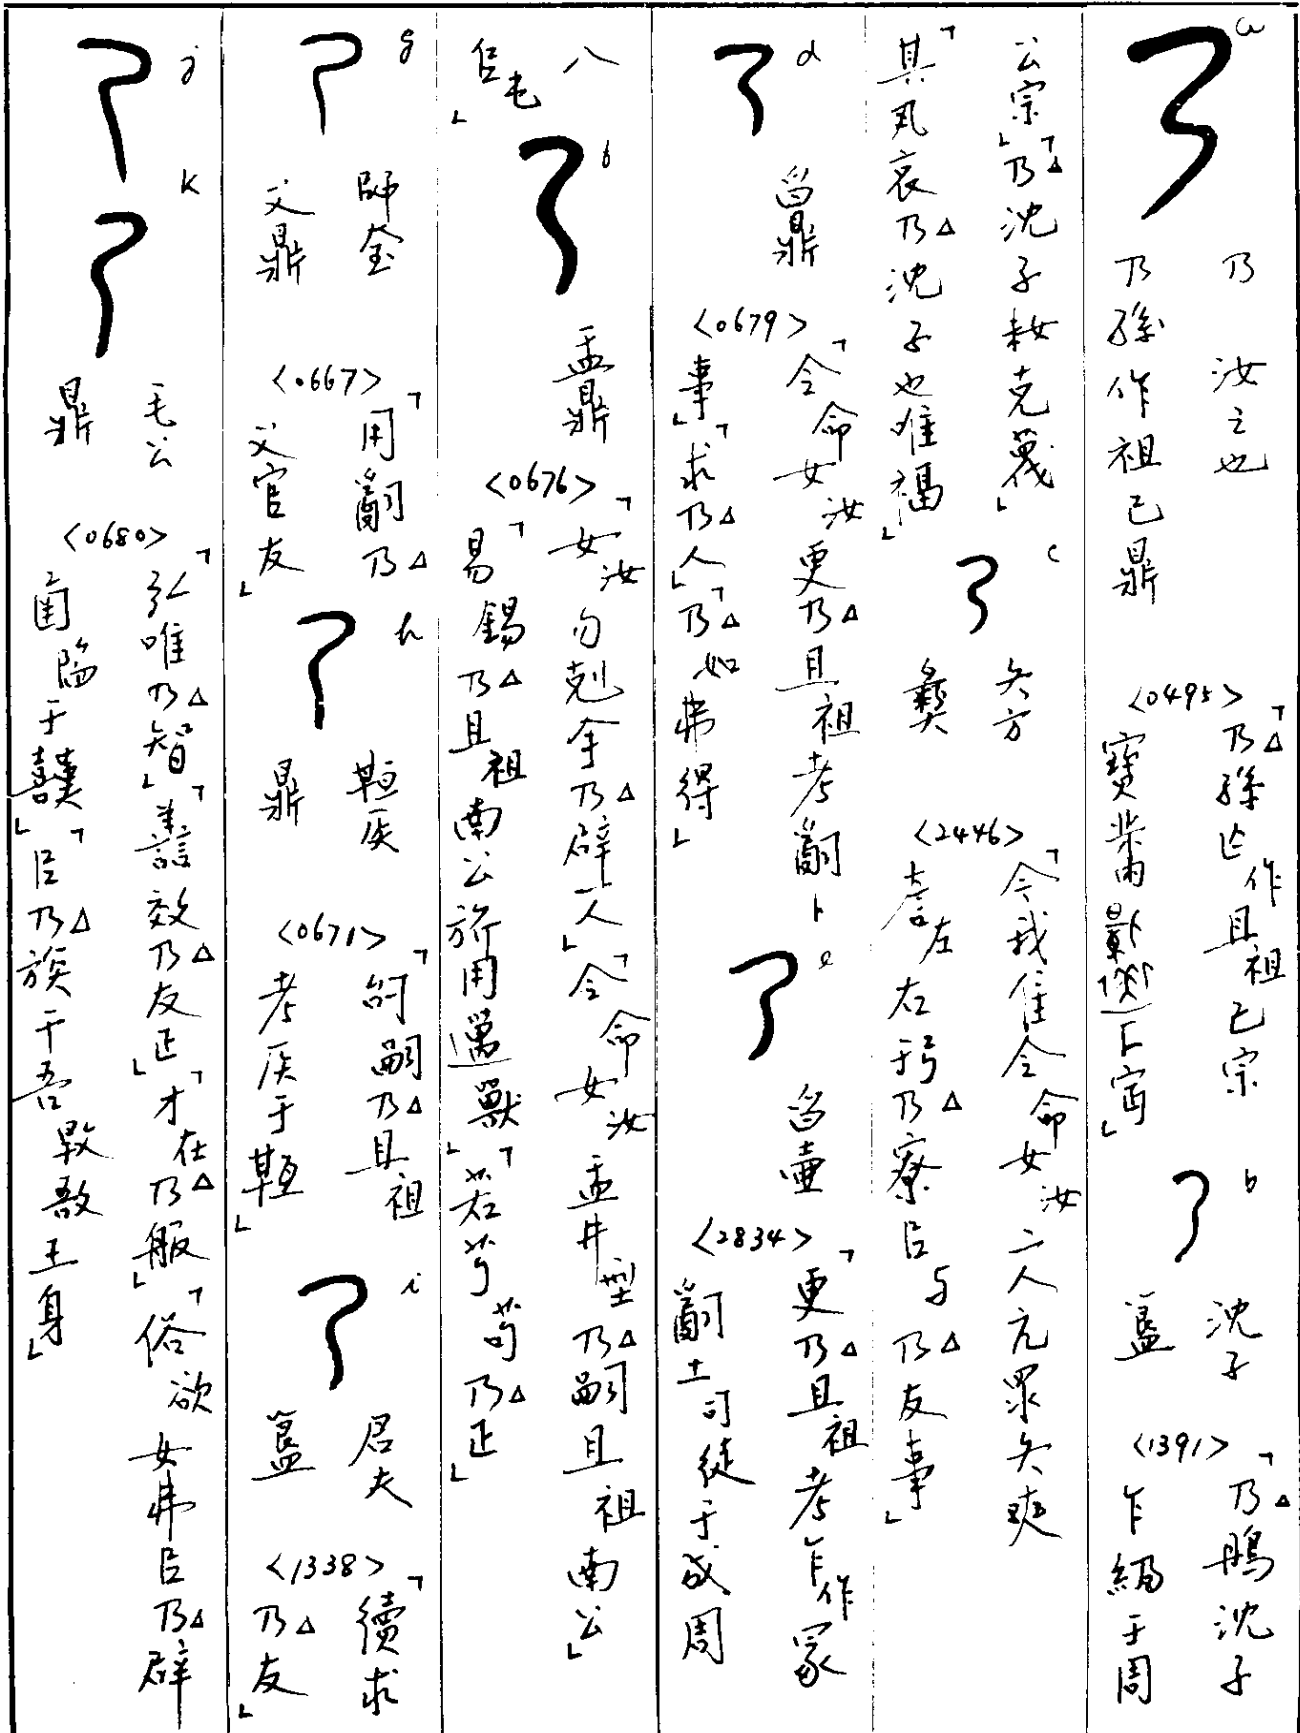 a
乃 汝之也
乃孫作祖己鼎
<0495>
「乃△孫乍作且祖己宗
寶黹鬲
宮」
b
沈子
簋
<1391>
「乃△鴅沈子
乍綢于周
公宗」「乃△沈子妹克蔑」
其丮哀乃△沈子也唯福」
c
矢方
彝
<2446>
「今我隹令命女汝二人亢眔矢爽
左右于乃△寮臣与乃△友事」
d
曶鼎
<0679>
「令命女汝更乃△且祖考嗣卜
事」「求乃△人」「乃△如弗得」
e
曶壷
<2834>
「更乃△且祖考乍作冢
嗣土司徒于成周
八
𠂤屯」
f
盂鼎
<0676>
「女汝勿剋余乃△辟一人」「令命女汝盂井型乃△嗣且祖南公」
「易錫乃△且祖南公旂用遘獸」「若芍茍乃△正」
g
師
父鼎
<0667>
「用嗣乃△
父官友」
h
侯
鼎
<0671>
「嗣乃△且祖
考侯于
」
i
君夫
簋
<1338>
「續求
乃△友」
j
k
毛公
鼎
<0680>
「弘唯乃△智」「善效乃△友正」「才在乃△服」「俗欲女弗㠯乃△辟
圅陷于艱」「㠯乃△族干吾敔王身」